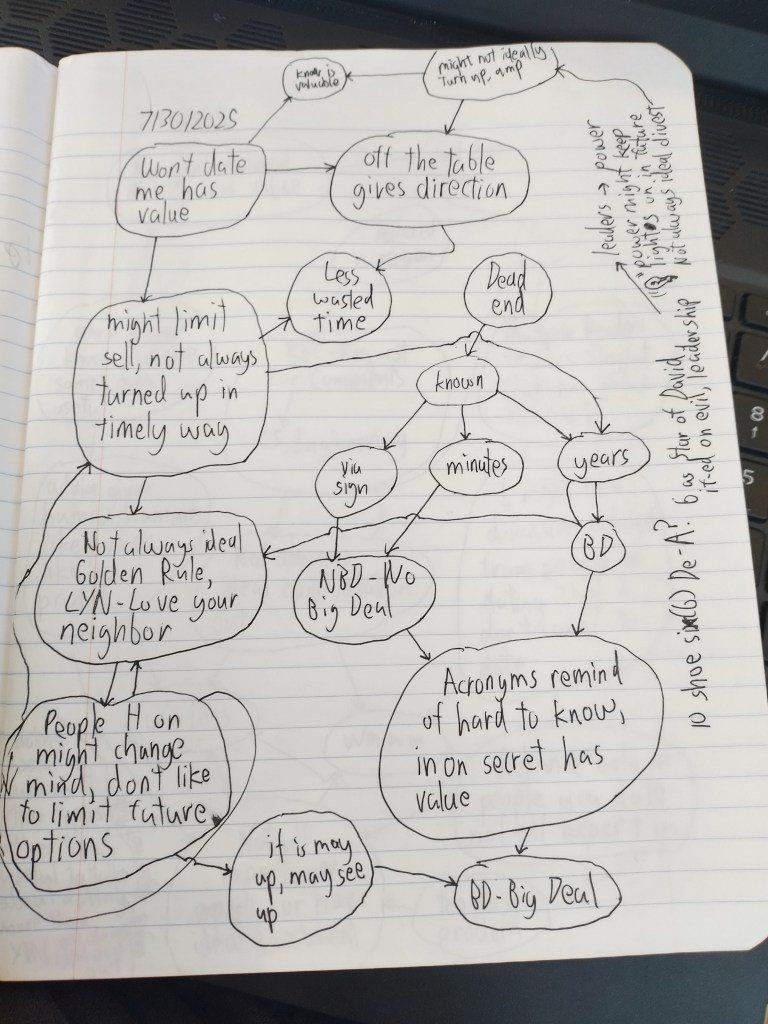 Know is
valuable
might not ideally
turn up, amp
7/30/2025
Won't date
me has
value
off the table
gives direction
Less
wasted
time
Dead
end
might limit
sell, not always
turned up in
timely way
known
via
sign
minutes
years
BD
Not always ideal
Golden Rule,
LYN-Love your
neighbor
NBD-No
Big Deal
Acronyms remind
of hard to know,
in on secret has
value
People H on
might change
mind, don't like
to limit future
options
it is may
up, may see
up
BD-Big Deal
leaders → power
"power might keep
lights on in future
Not always ideal divest
10 shoe sin(6) De-A? 6 as Star of David
it-ed on evil, leadership
8
5